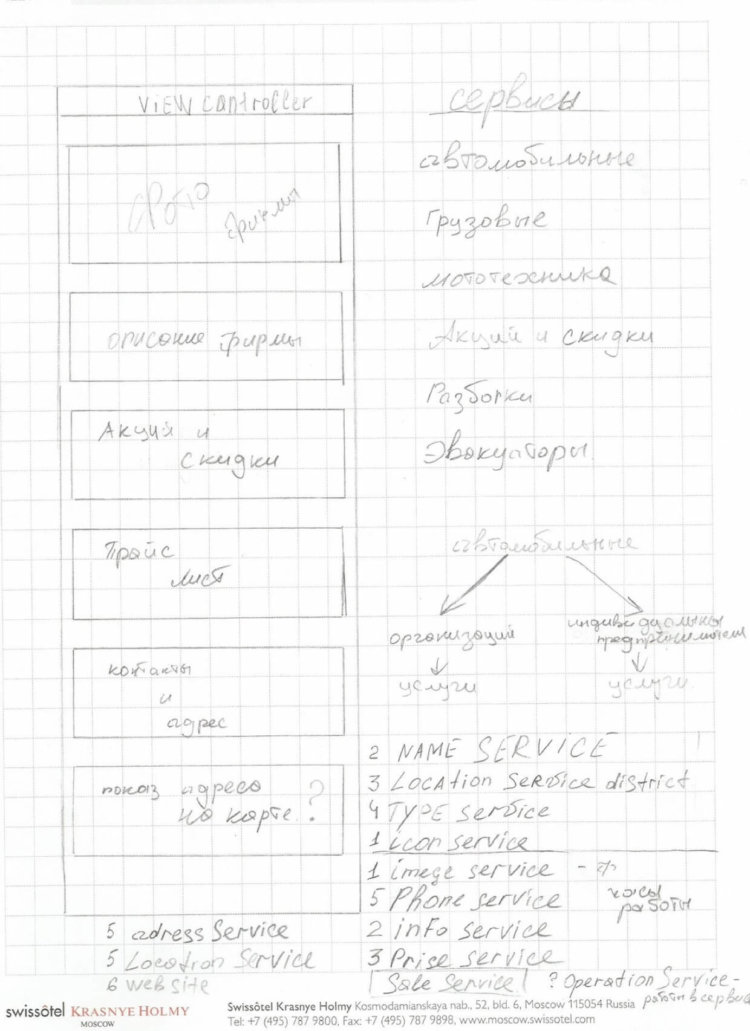 ViEW controller
фото
фирмы
описание фирмы
Акций и
скидки
Прайс
лист
контакты
и
адрес
показ адреса
на карте ?
сервисы
автомобильные
Грузовые
мототехника
Акций и скидки
Разборки
Эвакуаторы.
автомобильные
организаций
индивидуальны
предпринимателей
услуги
услуги
2 NAME SERVICE
3 LOCATION SERVICE district
4 TYPE service
1 icon service
1 imege service -
5 Phone service
часы
работы
2 info service
3 Prise service
Sale Service
? Operation Service -
работы в сервисе
5 adress Service
5 Location Service
6 web site
swissôtel KRASNYE HOLMY
MOSCOW
Swissôtel Krasnye Holmy Kosmodamianskaya nab., 52, bld. 6, Moscow 115054 Russia
Tel: +7 (495) 787 9800, Fax: +7 (495) 787 9898, www.moscow.swissotel.com